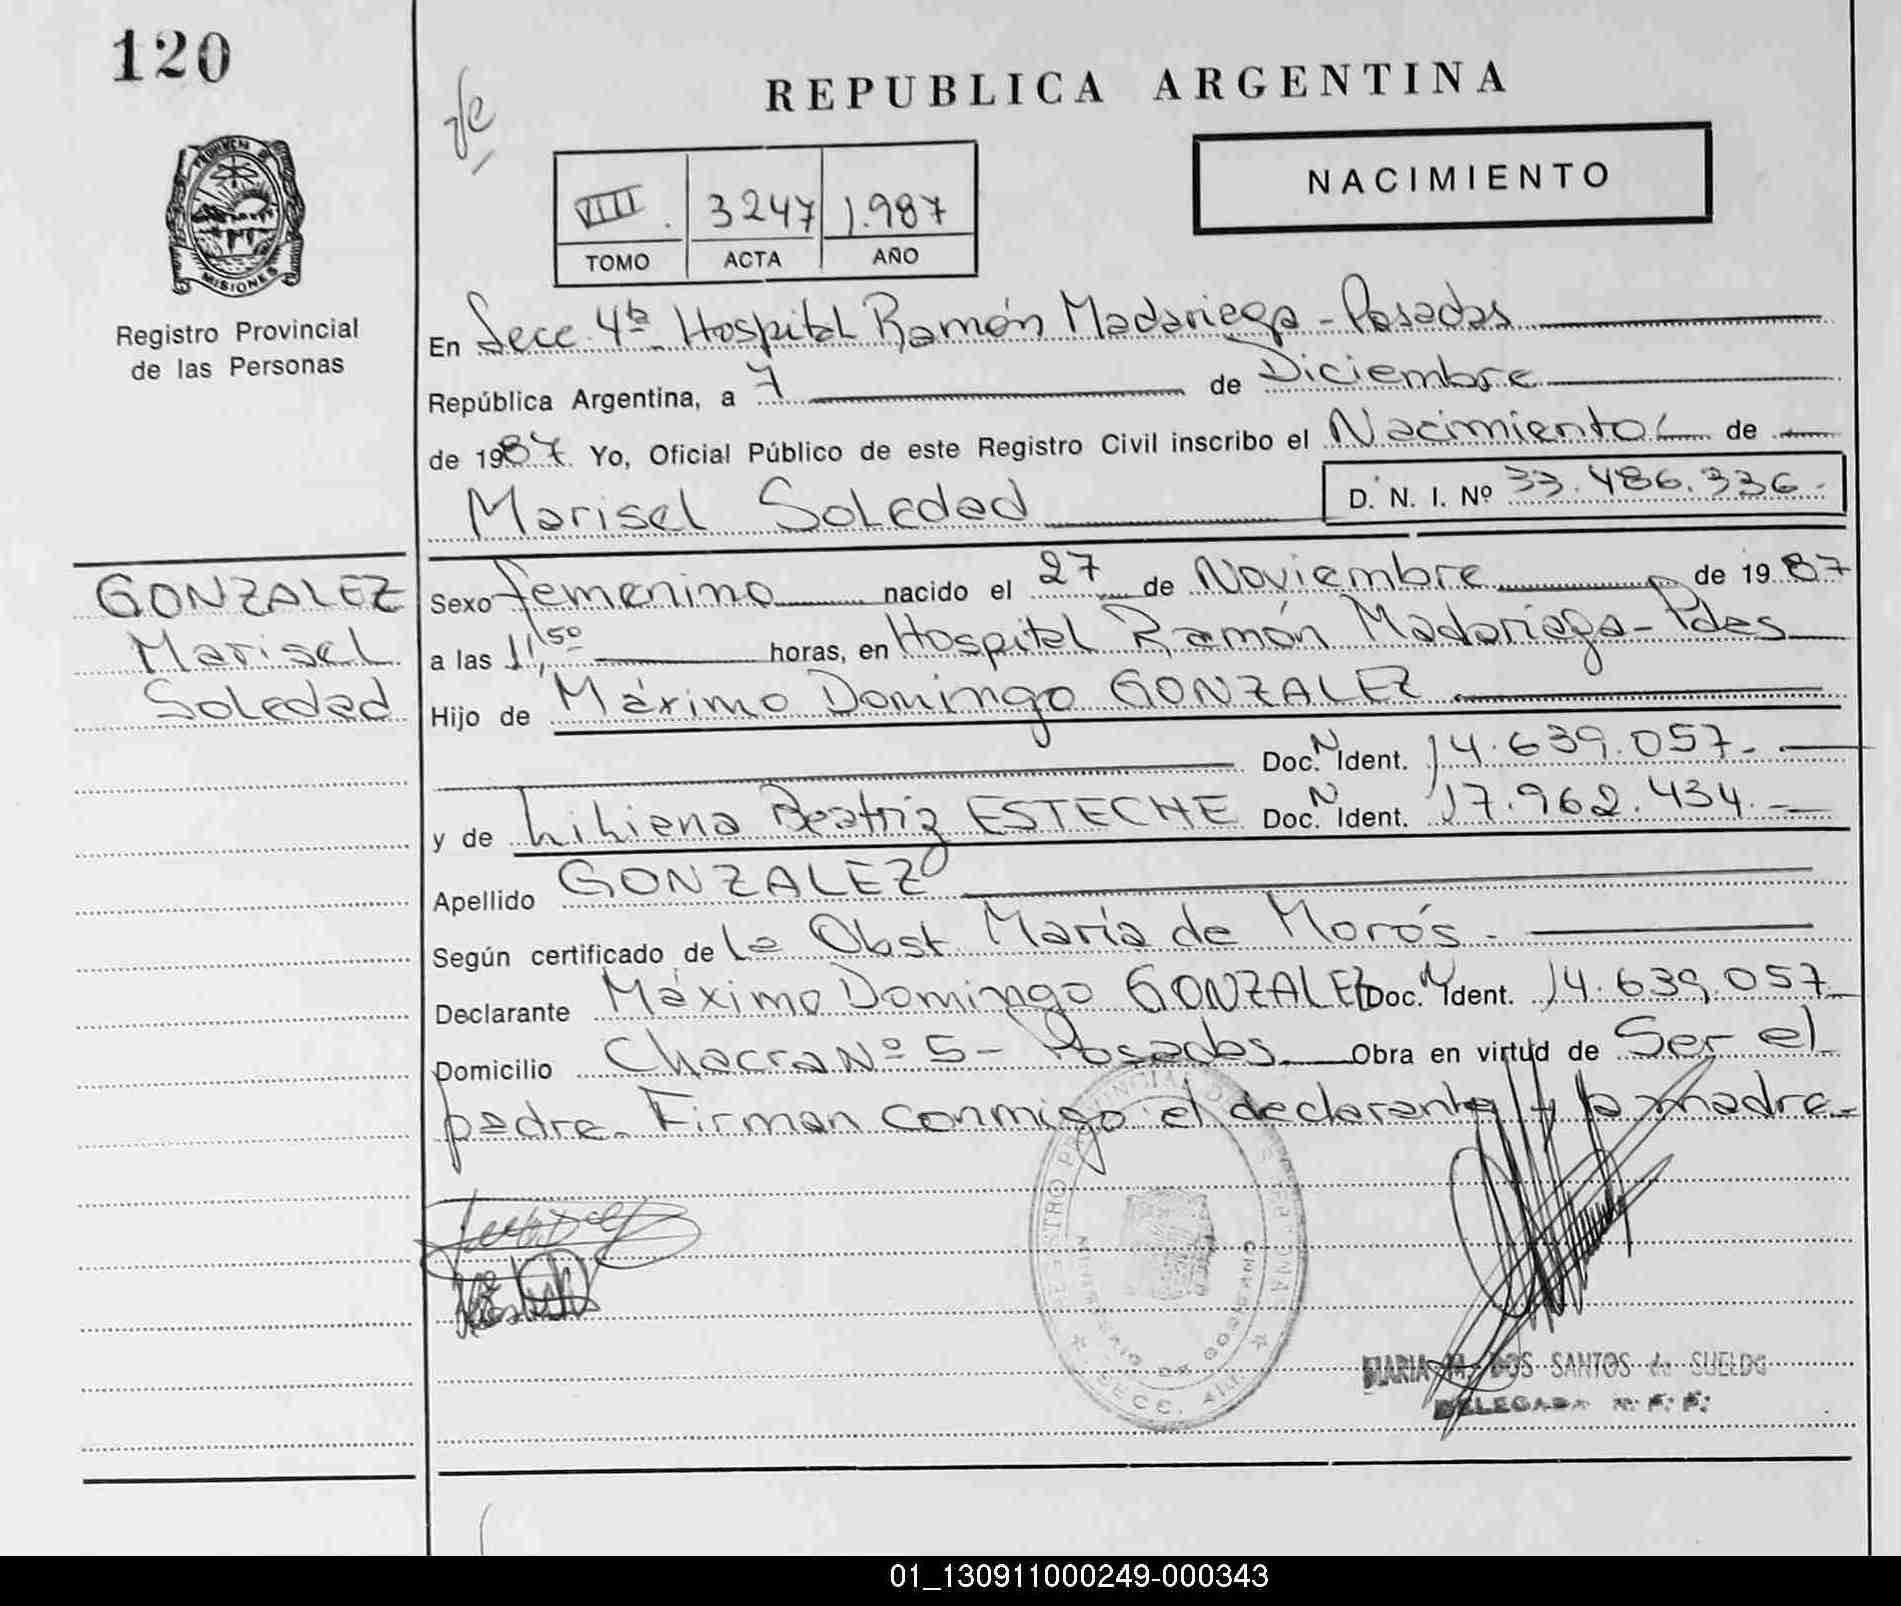 120
REPUBLICA ARGENTINA
NACIMIENTO
VIII. 3247 1.987
TOMO ACTA AÑO
PROVINCIA DE MISIONES
Registro Provincial
de las Personas
En Secc. 4ta Hospital Ramón Madariaga - Posadas
República Argentina, a 7 de Diciembre
de 1987. Yo, Oficial Público de este Registro Civil inscribo el Nacimiento de
Marisel Soledad D. N. I. Nº 33.486.336.-
GONZALEZ
Marisel
Soledad
Sexo femenino nacido el 27 de Noviembre de 1987
a las 11,50 horas, en Hospital Ramón Madariaga - Pdas
Hijo de Máximo Domingo GONZALEZ
Doc. N Ident. 14.639.057.-
y de Liliana Beatriz ESTECHE Doc. N Ident. 17.962.434.-
Apellido GONZALEZ
Según certificado de la Obst. María de Morós.-
Declarante Máximo Domingo GONZALEZ Doc. N Ident. 14.639.057
Domicilio Chacra Nº 5 - Posadas Obra en virtud de Ser el
padre. Firman conmigo el declarante y la madre.-
MARIA M. DOS SANTOS de SUELDO
DELEGADA R. P. P.
01_130911000249-000343